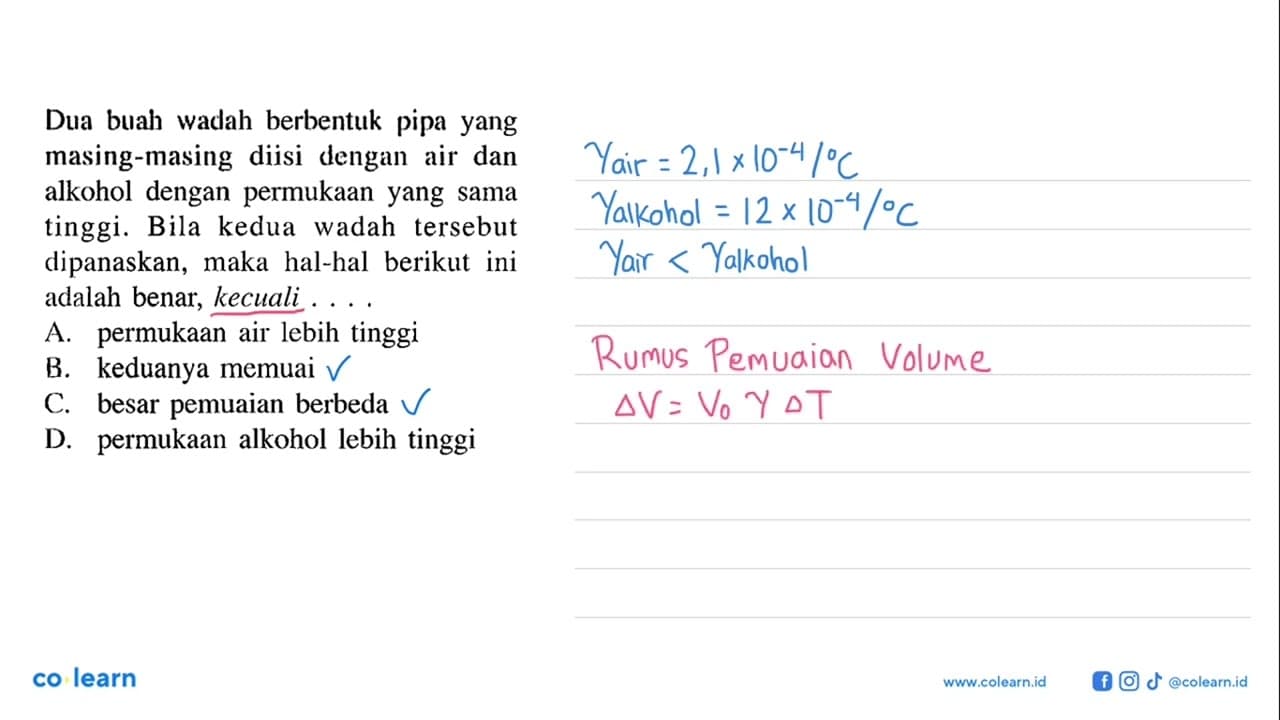 Dua buah wadah berbentuk pipa yang
masing-masing diisi dengan air dan
alkohol dengan permukaan yang sama
tinggi. Bila kedua wadah tersebut
dipanaskan, maka hal-hal berikut ini
adalah benar, kecuali . . . .
A. permukaan air lebih tinggi
B. keduanya memuai ✓
C. besar pemuaian berbeda ✓
D. permukaan alkohol lebih tinggi
γair = 2,1 × 10⁻⁴/°C
γalkohol = 12 × 10⁻⁴/°C
γair < γalkohol
Rumus Pemuaian Volume
ΔV = V₀ γ ΔT
co learn
www.colearn.id
@colearn.id